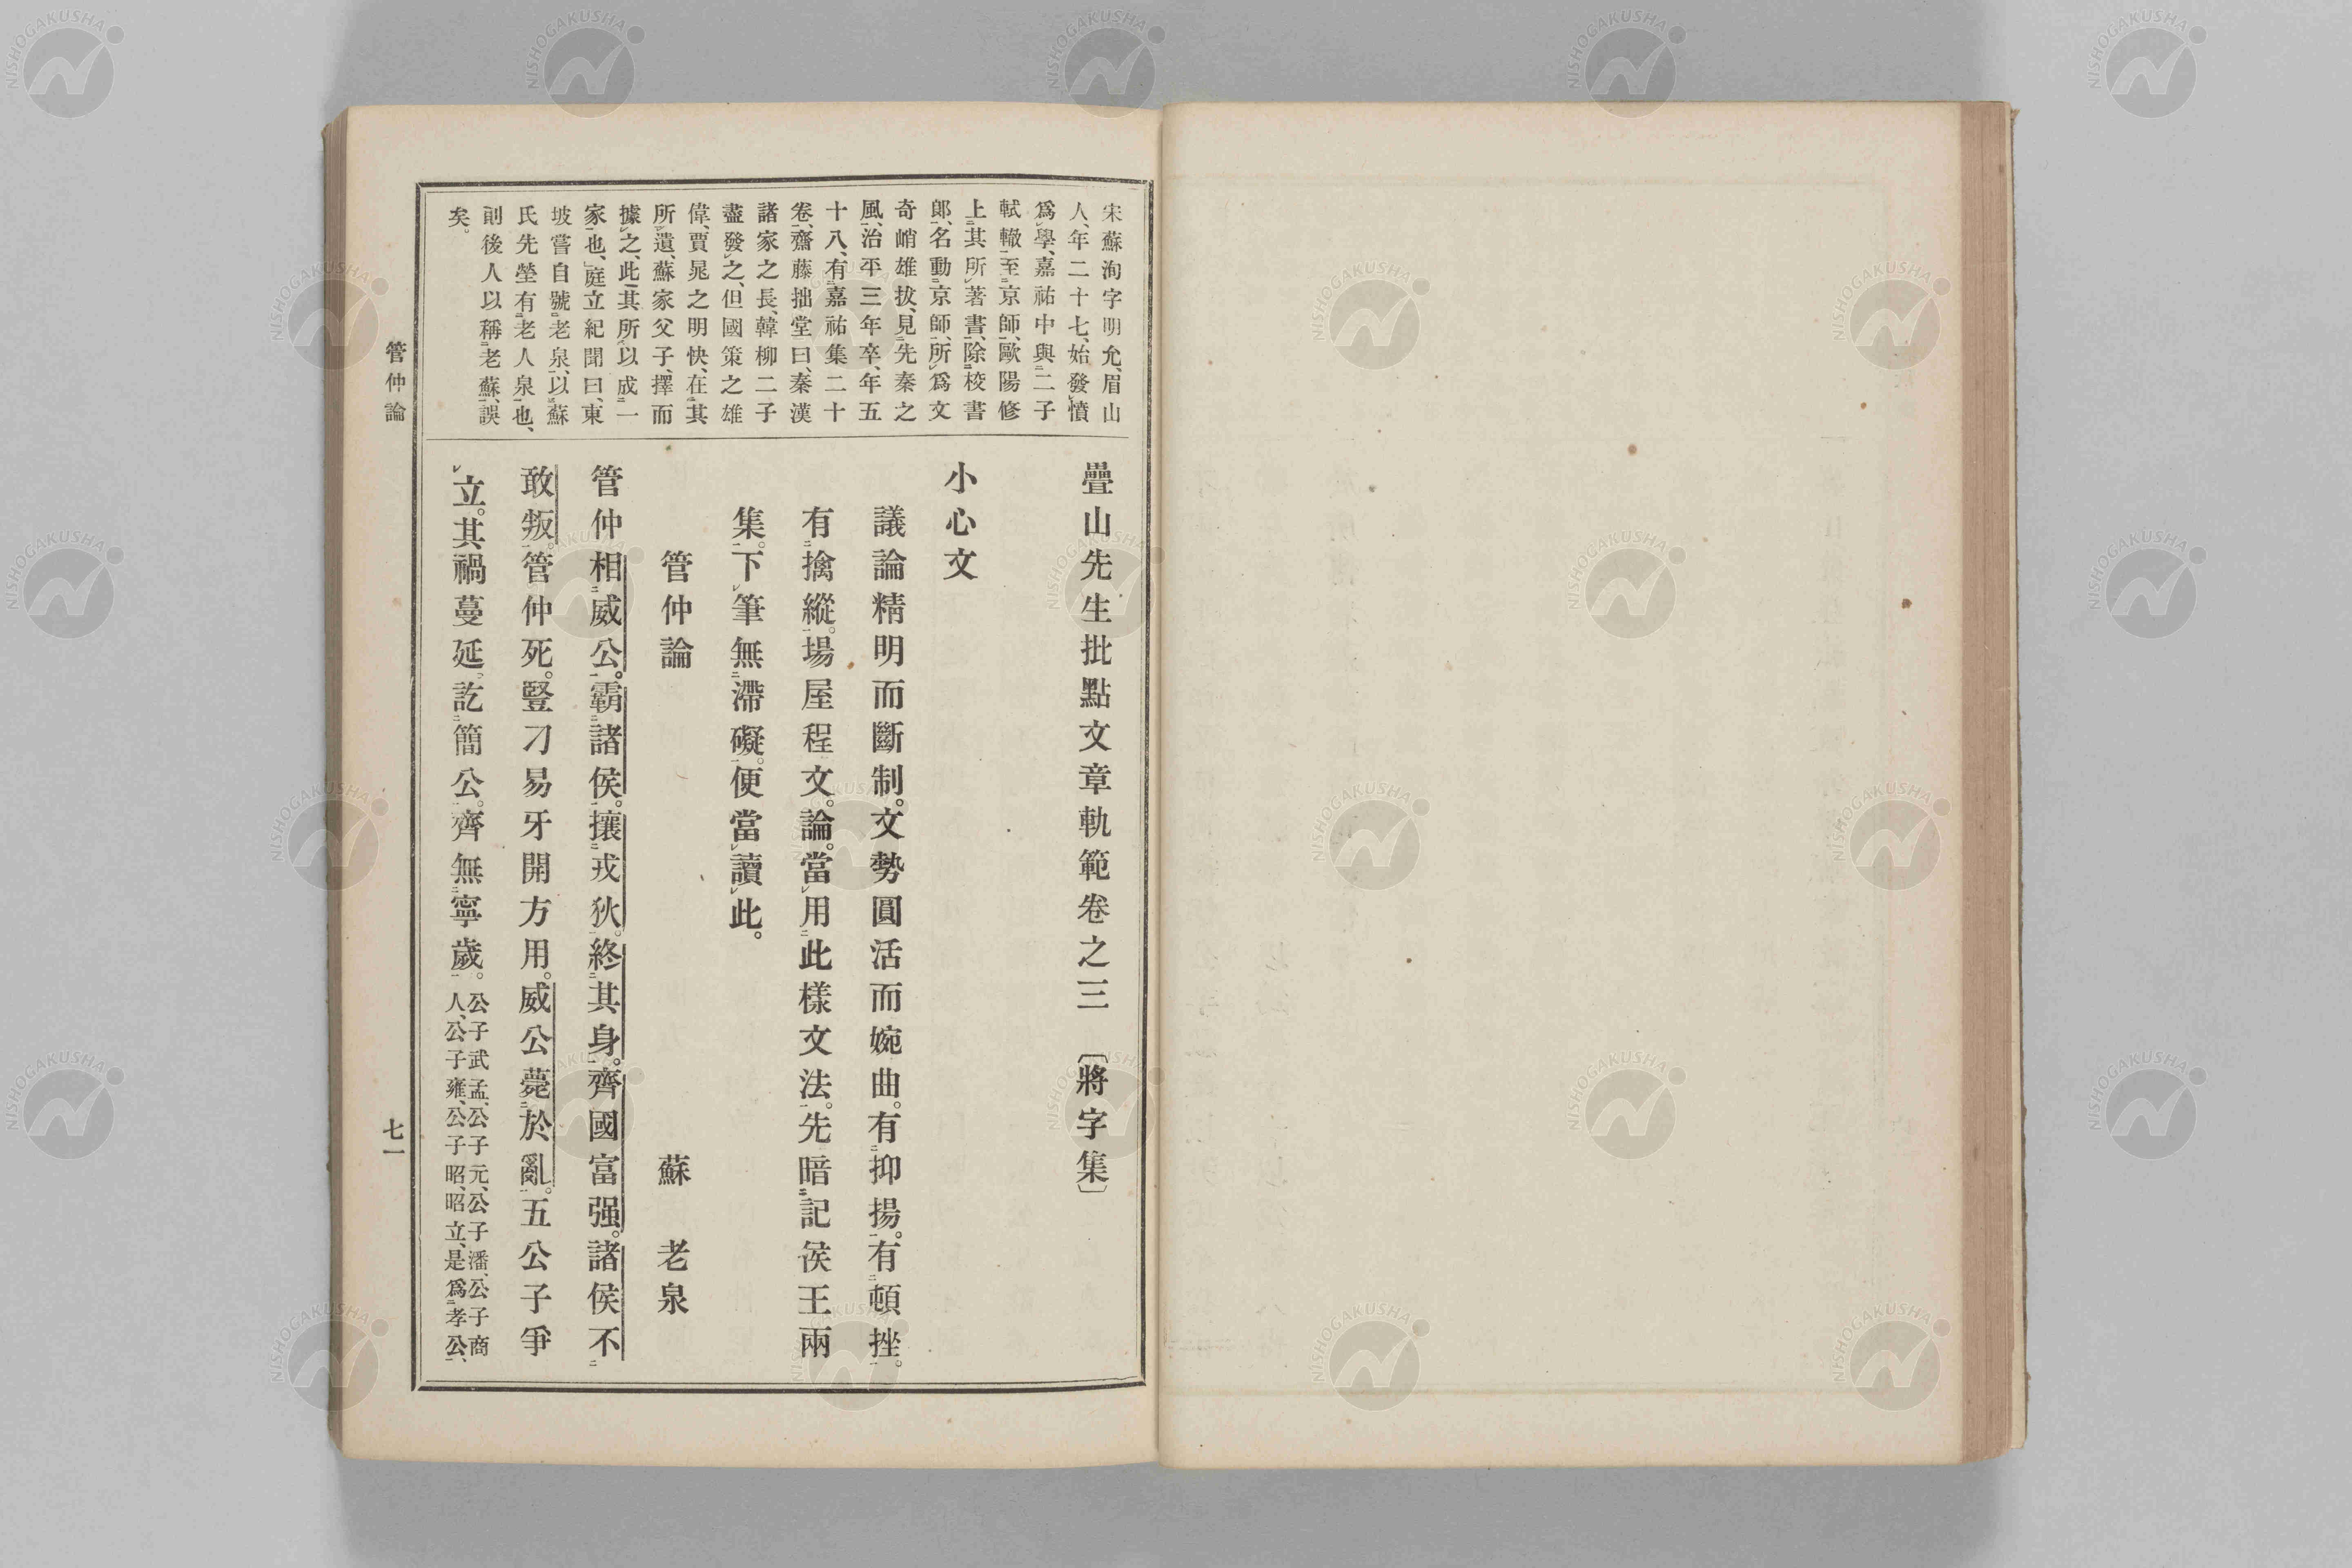 宋蘇洵字明允、眉山
人、年二十七、始發憤
爲學、嘉祐中與二子
軾轍至京師、歐陽修
上其所著書、除校書
郎、名動京師、所爲文
奇峭雄拔、見先秦之
風、治平三年卒、年五
十八、有嘉祐集二十
卷、齋藤拙堂曰、秦漢
諸家之長、韓柳二子
盡發之、但國策之雄
偉、賈晁之明快、在其
所遺、蘇家父子、擇而
據之、此其所以成一
家也、庭立紀聞曰、東
坡嘗自號老泉、以蘇
氏先塋有老人泉也、
則後人以稱老蘇、誤
矣。
疊山先生批點文章軌範卷之三 〔將字集〕
小心文
議論精明而斷制。文勢圓活而婉曲。有抑揚。有頓挫。
有擒縱。場屋程文。論。當用此樣文法。先暗記侯王兩
集。下筆無滯礙。便當讀此。
管仲論 蘇老泉
管仲相威公。霸諸侯。攘戎狄。終其身。齊國富强。諸侯不
敢叛。管仲死。豎刁易牙開方用。威公薨於亂。五公子爭
立。其禍蔓延。訖簡公。齊無寧歲。
公子武孟、公子元、公子潘、公子商
人、公子雍、公子昭、昭立、是爲孝公、
管仲論
七一
NISHOGAKUSHA